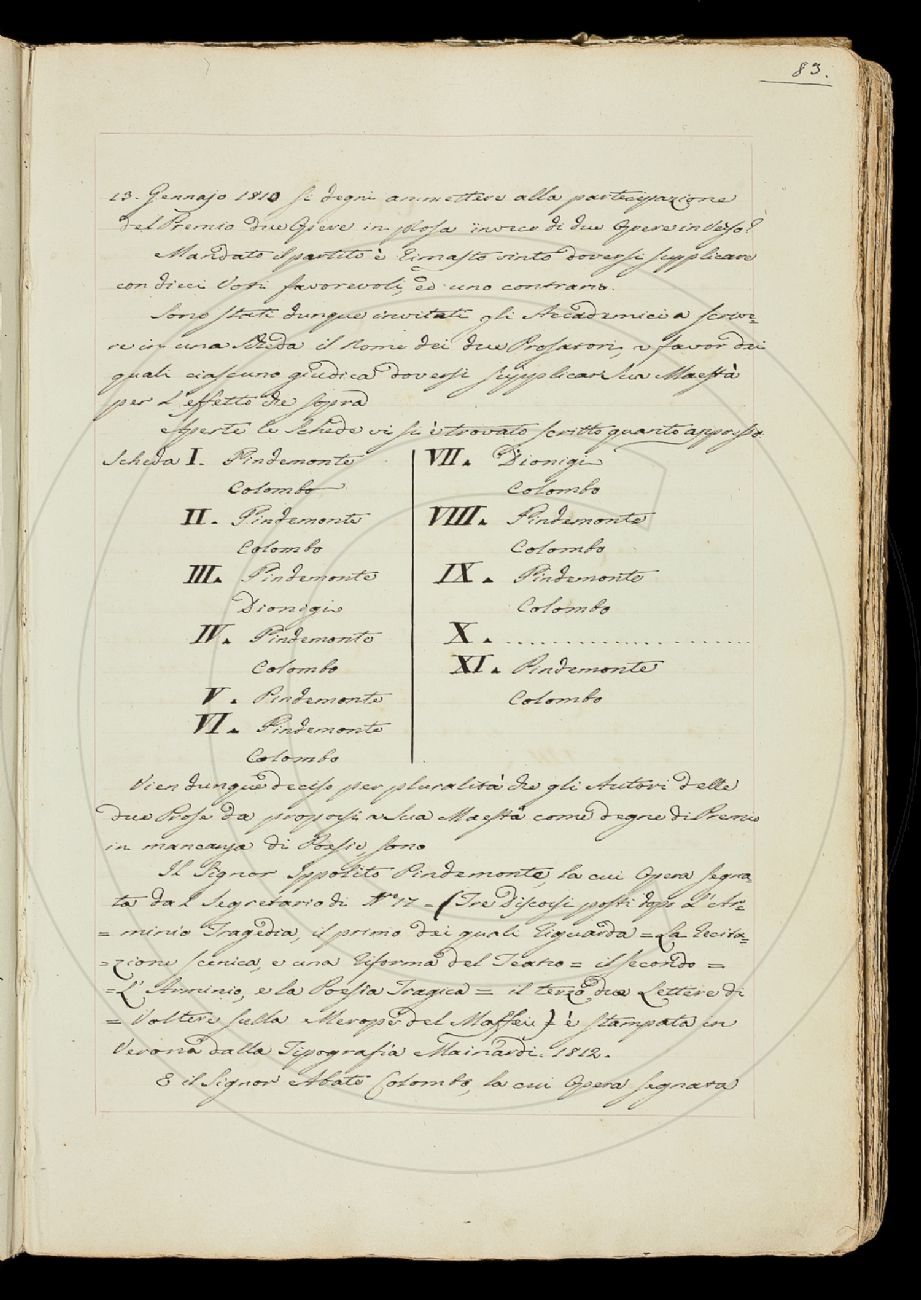 83.
13. Gennajo 1810 si degni ammettere alla partecipazione
del Premio due Opere in prosa invece di due Opere in Verso?
Mandato il partito è rimasto vinto doversi supplicare
con dieci Voti favorevoli, ed uno contrario.
Sono stati dunque invitati gli Accademici a scrive-
re in una Scheda il Nome dei due Prosatori, a favor dei
quali ciascuno giudica doversi supplicare Sua Maestà
per l'effetto di sopra
Aperte le Schede vi si è trovato scritto quanto appresso
Scheda I. Pindemonte
Colombo
II. Pindemonte
Colombo
III. Pindemonte
Dionigi
IV. Pindemonte
Colombo
V. Pindemonte
VI. Pindemonte
Colombo
VII. Dionigi
Colombo
VIII. Pindemonte
Colombo
IX. Pindemonte
Colombo
X. . . . . . . . . . . . . . . . . . . .
XI. Pindemonte
Colombo
Vien dunque deciso per pluralità che gli Autori delle
due Prose da proporsi a Sua Maestà come degne di Premio
in mancanza di Poesie, sono
Il Signor Ippolito Pindemonte, la cui Opera segna-
ta dal Segretario di N.° 17 = (Tre Discorsi posti dopo l'Ar-
= minio Tragedia, il primo dei quali riguarda = La recita-
= zione scenica, e una riforma del Teatro = il secondo =
= L'Arminio, e la Poesia Tragica = il terzo due Lettere di
= Volter sulla Merope del Maffei) è stampata in
Verona dalla Tipografia Mainardi. 1812.
E il Signor Abate Colombo, la cui Opera segnata